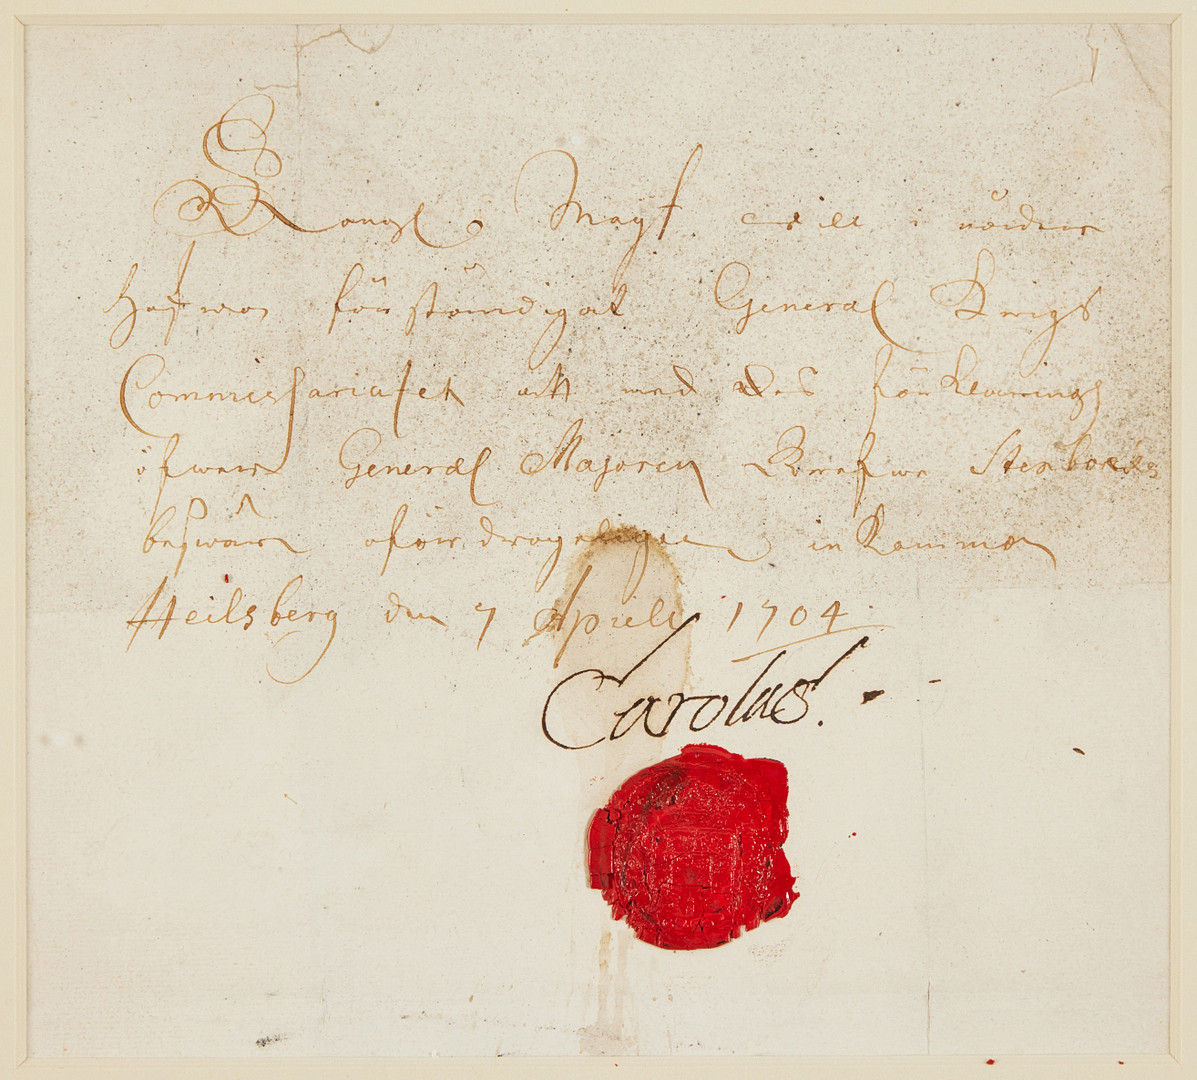 Kongl Mayt will i nåder
hafwa förständigat General Krigs
Commissariatet att med des förklaring
öfwer General Majoren Grefwe Stenbocks
beswär ofördrögeligen inkomma
Heilsberg den 7 Aprill 1704
Carolus.